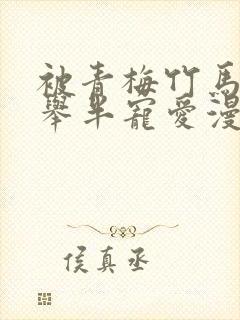 被青梅竹馬
舉半寵愛漫
侯真丞